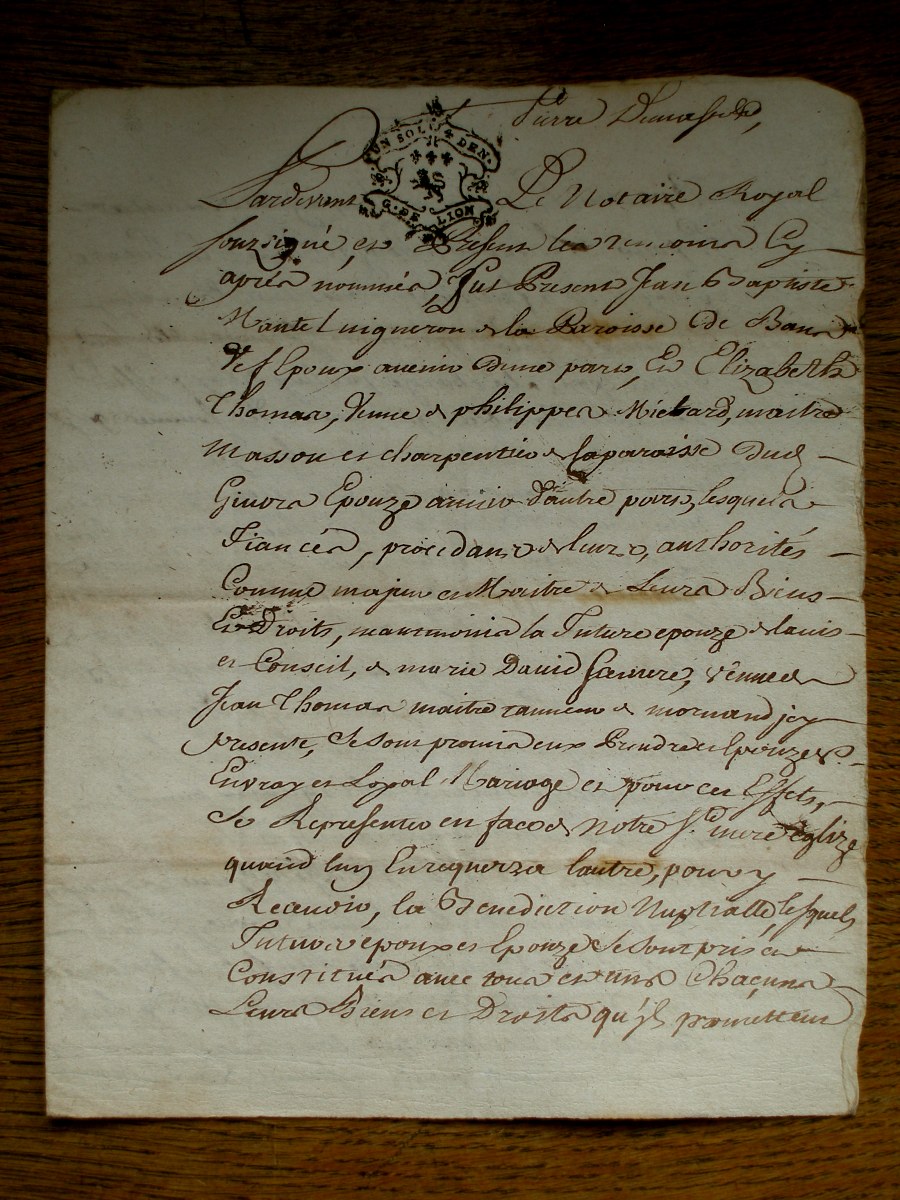 Pierre Dumas
UN SOL * DEN.
G. DE LION
Pardevant Le Notaire Royal
soussigné et Present les temoins Cy
aprés nommés, fut Present Jean Baptiste
vigneron de la Paroisse de
Epoux avenir dune part, Et Elizabeth
Thomas, veuve de philippes Michard, maitre
masson et charpentier de laparoisse dud
Epouze avenir dautre part, lesquels
fiancés, procedant de leurs authorités
Comme majeurs et Maitre de Leurs Biens
Et Droits, neantmoins la future epouze de lavis
et Conseil, de marie David sa mere, veuve de
Jean Thomas maitre tanneur de mornand jcy
presente, se sont promis eux Prendre et Epouzer
En vray et Loyal Mariage et pour cet Effets,
se Representer en face de Notre Ste mere Eglize
quand lun En requerera lautre, pour y
Recevoir, la Benediction Nuptialle, lesquels
futurs epoux et Epouze se sont pris et
Constitués avec tous et uns Chacuns
Leurs Biens et Droits qu'jls promettent